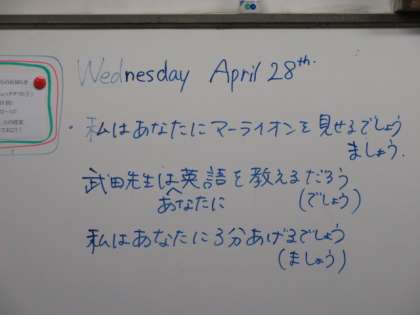 Wednesday April 28th.
・私はあなたにマーライオンを見せるでしょう
ましょう.
武田先生は英語を教えるだろう
あなたに (でしょう)
私はあなたに3分あげるでしょう
(ましょう)